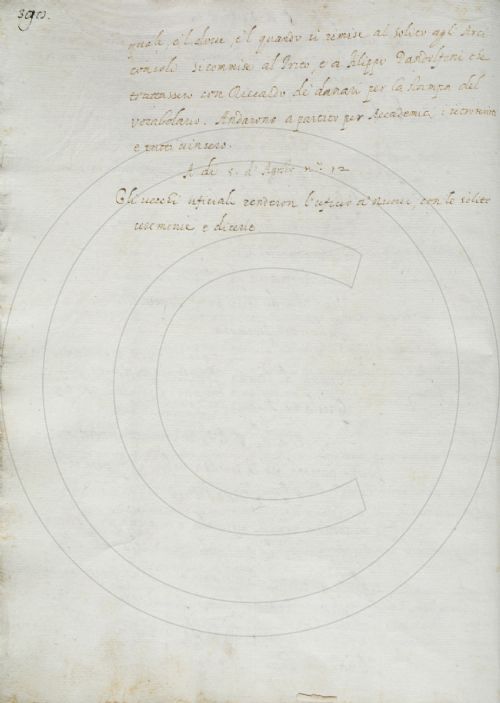 quale e'l dove, e'l quando si remise al solito agli Arci
consoli si commise al Trito, e a Filippo Pandolfini che
trattassero con Riccardo de danari per la stampa del
vocabolario. Andarono a partito per Accademici, i
e tutti vinsero.
A dì 5. d'Agosto n.º 12
Gli vecchi uficiali renderon l'uficio a' nuovi, con le solite
cerimonie e dicerie